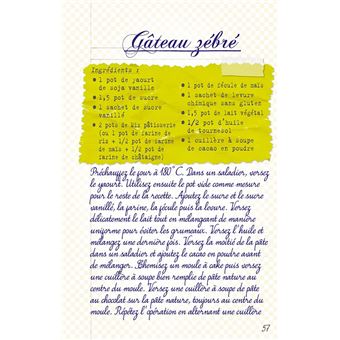 Gâteau zébré
Ingrédients :
• 1 pot de yaourt
de soja vanille
• 1,5 pot de sucre
• 1 sachet de sucre
vanillé
• 2 pots de mix pâtisserie
(ou 1 pot de farine de
riz + 1/2 pot de farine
de maïs + 1/2 pot de
farine de châtaigne)
• 1 pot de fécule de maïs
• 1 sachet de levure
chimique sans gluten
• 1,5 pot de lait végétal
• 1/2 pot d'huile
de tournesol
• 1 cuillère à soupe
de cacao en poudre
Préchauffez le four à 180° C. Dans un saladier, versez
le yaourt. Utilisez ensuite le pot vide comme mesure
pour le reste de la recette. Ajoutez le sucre et le sucre
vanillé, la farine, la fécule puis la levure. Versez
délicatement le lait tout en mélangeant de manière
uniforme pour éviter les grumeaux. Versez l'huile et
mélangez une dernière fois. Versez la moitié de la pâte
dans un saladier et ajoutez le cacao en poudre avant
de mélanger. Chemisez un moule à cake puis versez
une cuillère à soupe bien remplie de pâte nature au
centre du moule. Versez une cuillère à soupe de pâte
au chocolat sur la pâte nature, toujours au centre du
moule. Répétez l'opération en alternant une cuillère
57